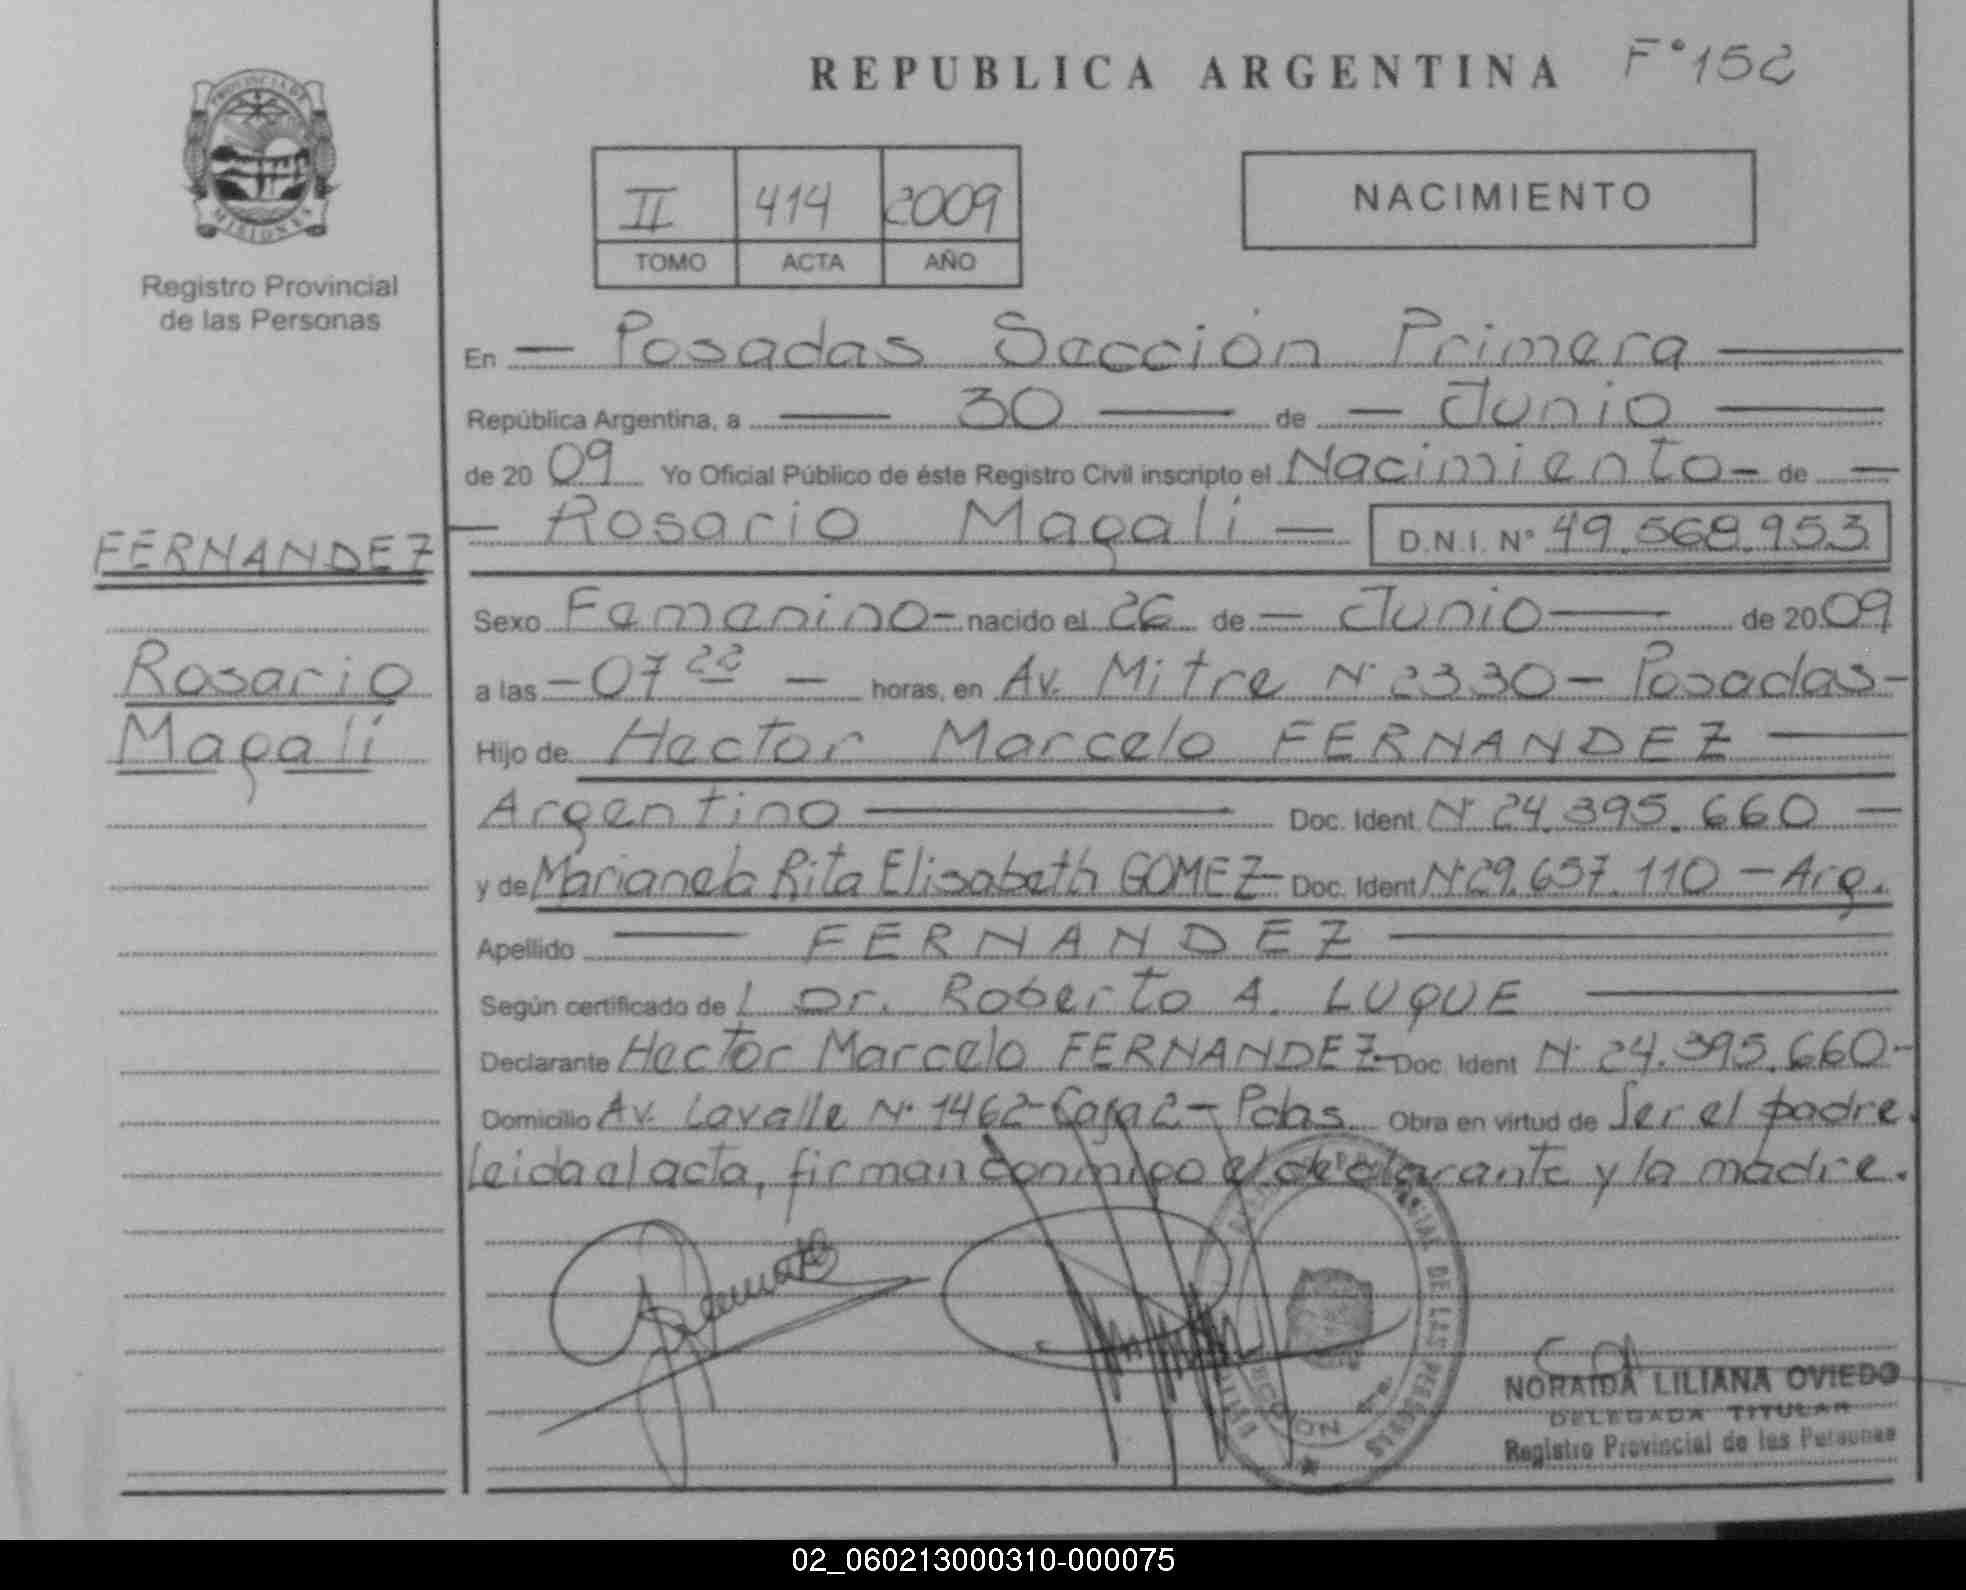 REPUBLICA ARGENTINA F° 152
PROVINCIA DE
MISIONES
Registro Provincial
de las Personas
II 414 2009
TOMO ACTA AÑO
NACIMIENTO
En — Posadas Sección Primera —
República Argentina, a — 30 — de — Junio —
de 20 09 Yo Oficial Público de éste Registro Civil inscripto el Nacimiento - de —
— Rosario Magalí — D.N.I. N° 49.568.953
FERNANDEZ
Rosario
Magalí
Sexo Femenino - nacido el 26 de — Junio — de 20 09
a las - 07 22 — horas, en Av. Mitre N° 2330 - Posadas -
Hijo de Hector Marcelo FERNANDEZ —
Argentino — Doc. Ident N° 24.395.660 —
y de Marianela Rita Elisabeth GOMEZ - Doc. Ident N° 29.657.110 - Arg.
Apellido — FERNANDEZ —
Según certificado de l Dr. Roberto A. LUQUE —
Declarante Hector Marcelo FERNANDEZ - Doc. Ident N° 24.395.660 -
Domicilio Av. Lavalle N° 1462 - Casa 2 - Pdas. Obra en virtud de Ser el padre.
Leida el acta, firman conmigo el declarante y la madre.
NORAIDA LILIANA OVIEDO
DELEGADA TITULAR
Registro Provincial de las Personas
02_060213000310-000075